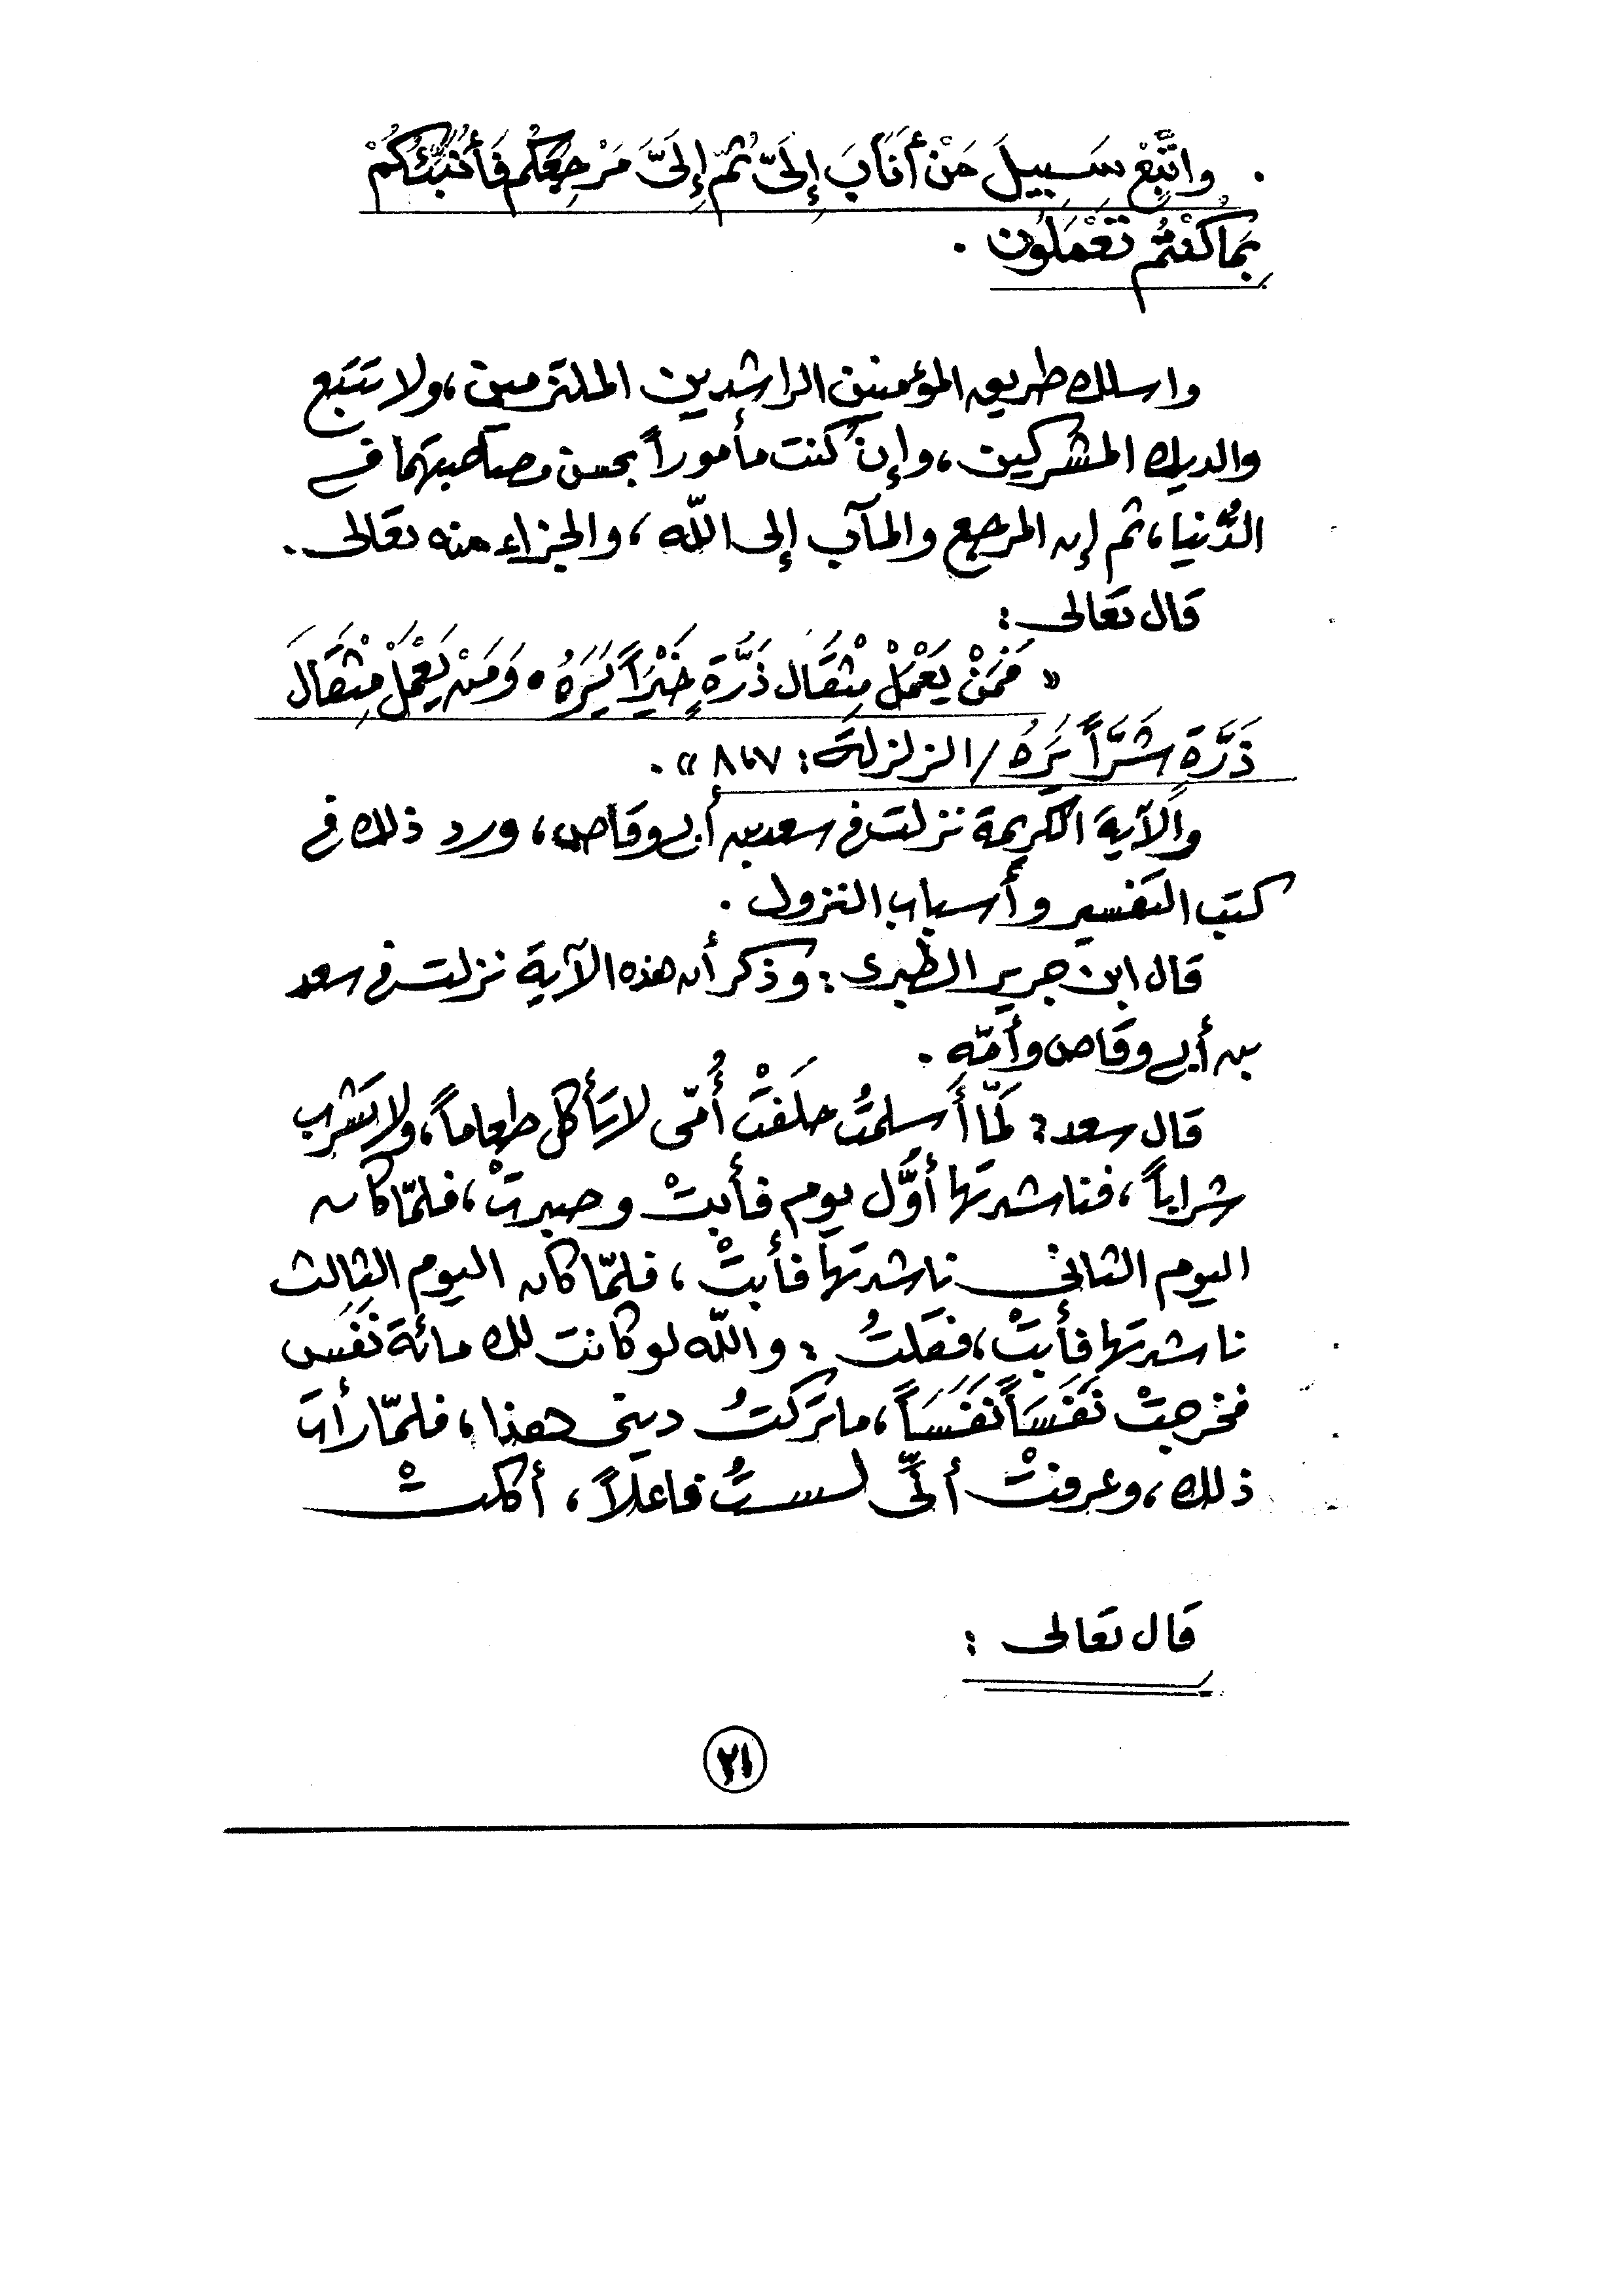 . واتَّبِعْ سَبِيلَ مَنْ أَنَابَ إِلَيّ ثُمّ إِلَيَّ مَرْجِعُكُم فَأُنَبِّئُكُمْ
بِمَا كُنْتُم تَعْمَلُون .
واسلك طريق المؤمنين الراشدين الملتزمين، ولا تتبع
والديك المشركين، وإن كنت مأموراً بحسن مصاحبتهما في
الدُّنيا، ثم إن المرجع والمآب إلى اللّه، والجزاء منه تعالى.
قال تعالى :
« فَمَنْ يَعْمَلْ مِثْقَال ذَرَّةٍ خَيْرَاً يَرَهُ • وَمَن يَعْمَلْ مِثْقَالَ
ذَرَّةٍ شَرَّاً يَرَهُ / الزلزلة : ٨،٧ » .
والآية الكريمة نزلت في سعد بن أبي وقاص، ورد ذلك في
كتب التفسير وأسباب النزول .
قال ابن جرير الطبري : وذكر أن هذه الآية نزلت في سعد
بن أبي وقاص وأمّه .
قال سعد : لمّا أَسلمتُ حلَفَتْ أُمّي لا تأكل طعاماً، ولا تشرب
شراباً، فناشدتها أوَّل يوم فأبتْ وصبرتْ، فلمّا كان
اليوم الثاني ناشدتها فأبتْ، فلمّا كان اليوم الثالث
ناشدتها فأبتْ، فقلتُ : واللّه لو كانت لك مائة نَفَس
فخرجتْ نَفَسَاً نَفَسَاً، ما تركتُ ديني هذا، فلمّا رأت
ذلك، وعرفتْ أنِّي لستُ فاعلاً، أكلتْ
قال تعالى :
٢١